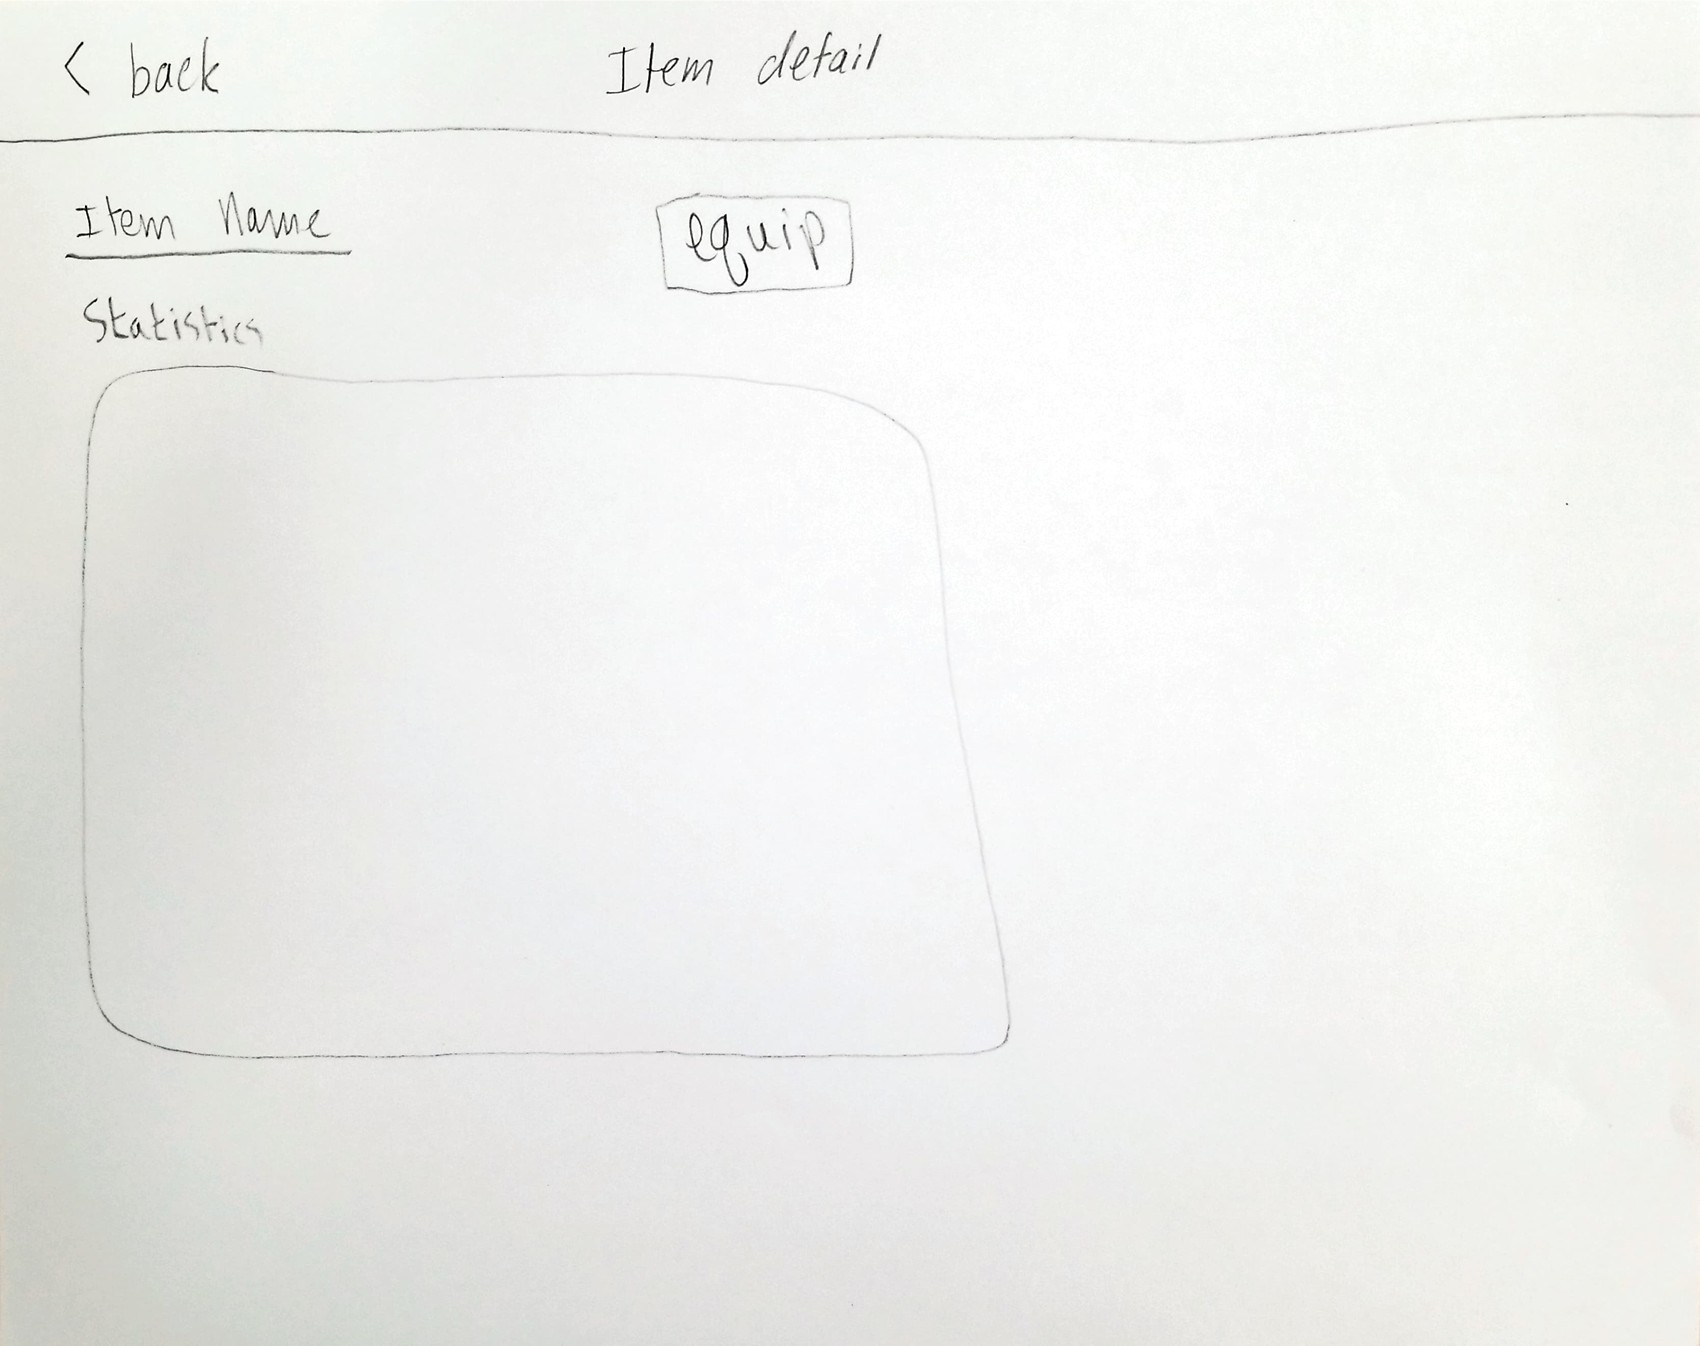 < back
Item detail
Item Name
equip
Statistics